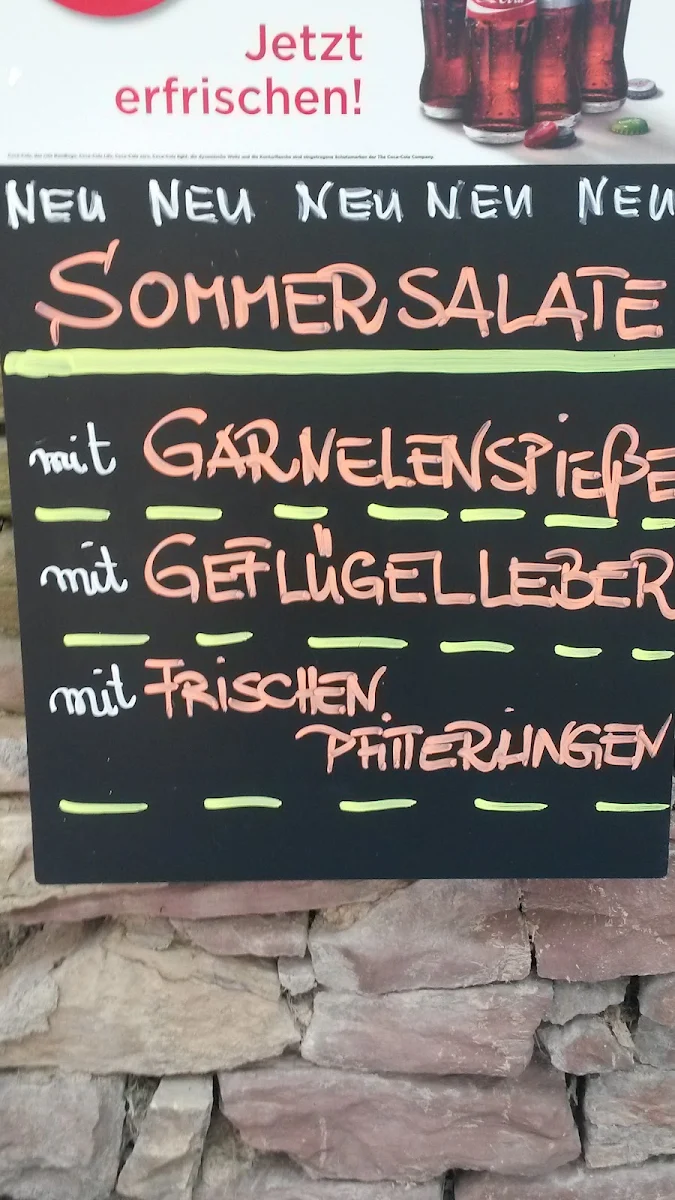 Jetzt
erfrischen!
NEU NEU NEU NEU NEU
SOMMERSALATE
mit GARNELENSPIEßE
mit GEFLÜGELLEBER
mit FRISCHEN
PFITTERLINGEN